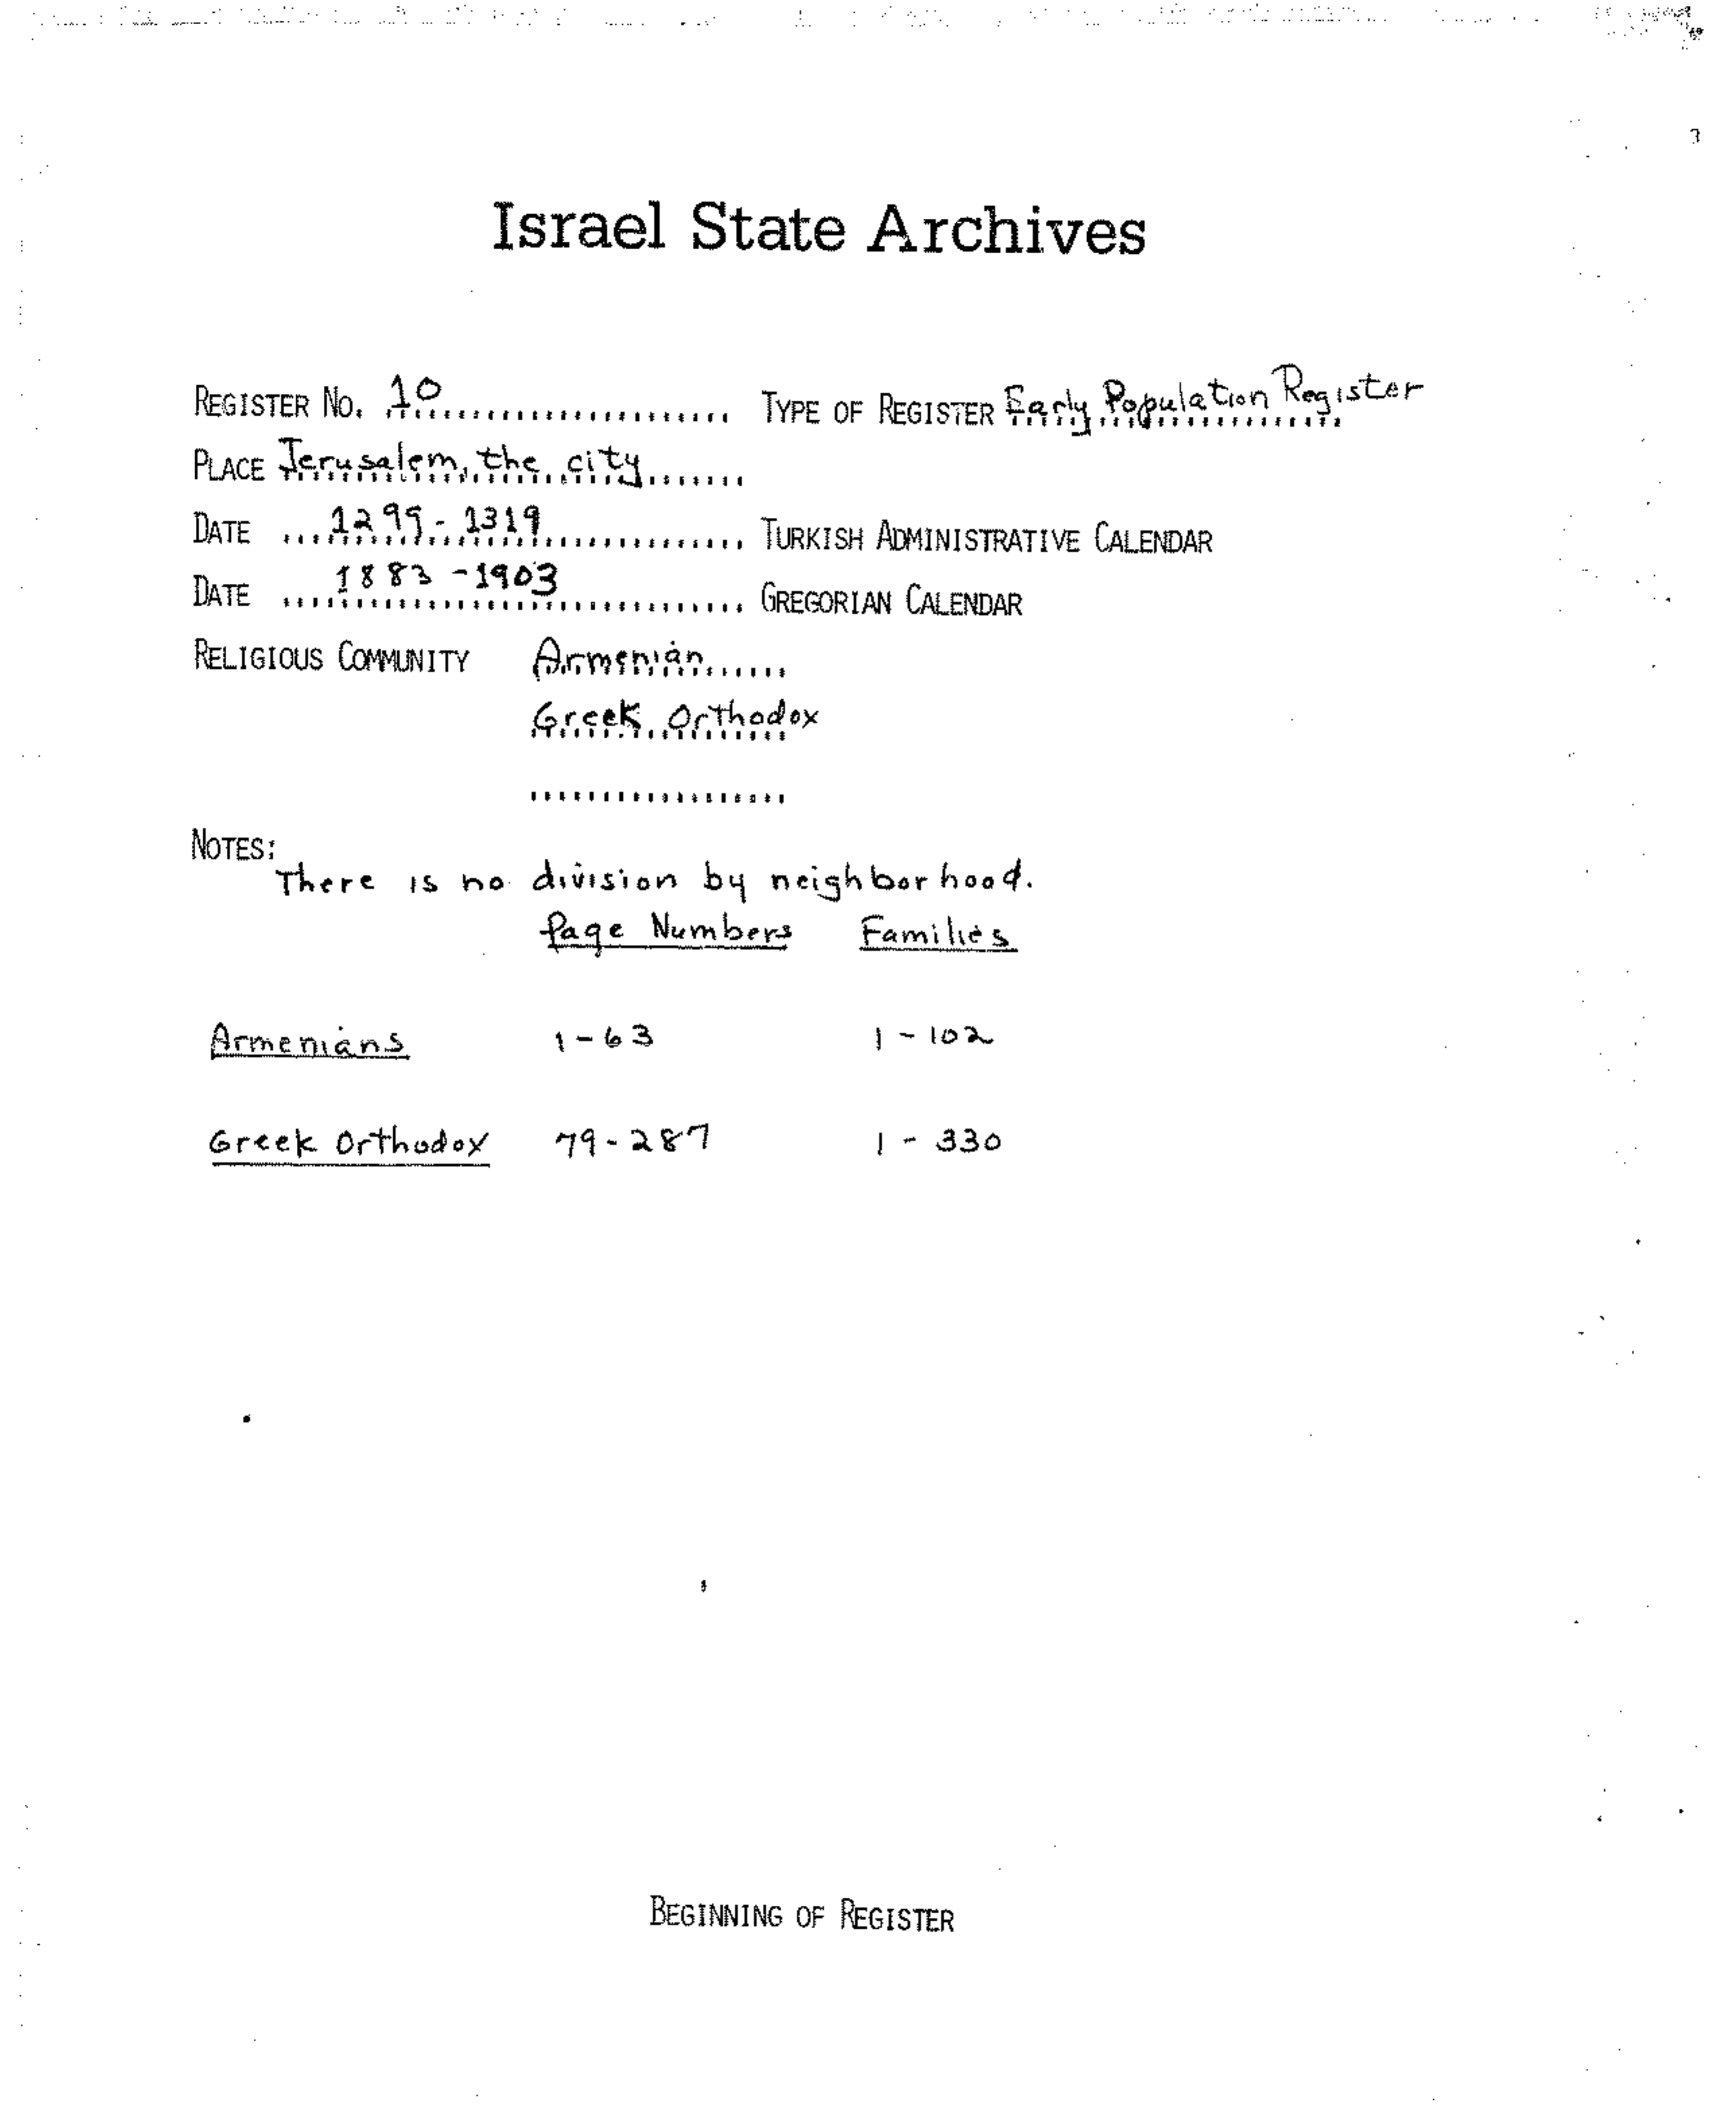 Israel State Archives
REGISTER NO. 10 TYPE OF REGISTER Early Population Register
PLACE Jerusalem, the city
DATE 1299-1319 TURKISH ADMINISTRATIVE CALENDAR
DATE 1883-1903 GREGORIAN CALENDAR
RELIGIOUS COMMUNITY Armenian
Greek Orthodox
NOTES:
There is no division by neighborhood.
Page Numbers Families
Armenians 1-63 1-102
Greek Orthodox 79-287 1-330
BEGINNING OF REGISTER